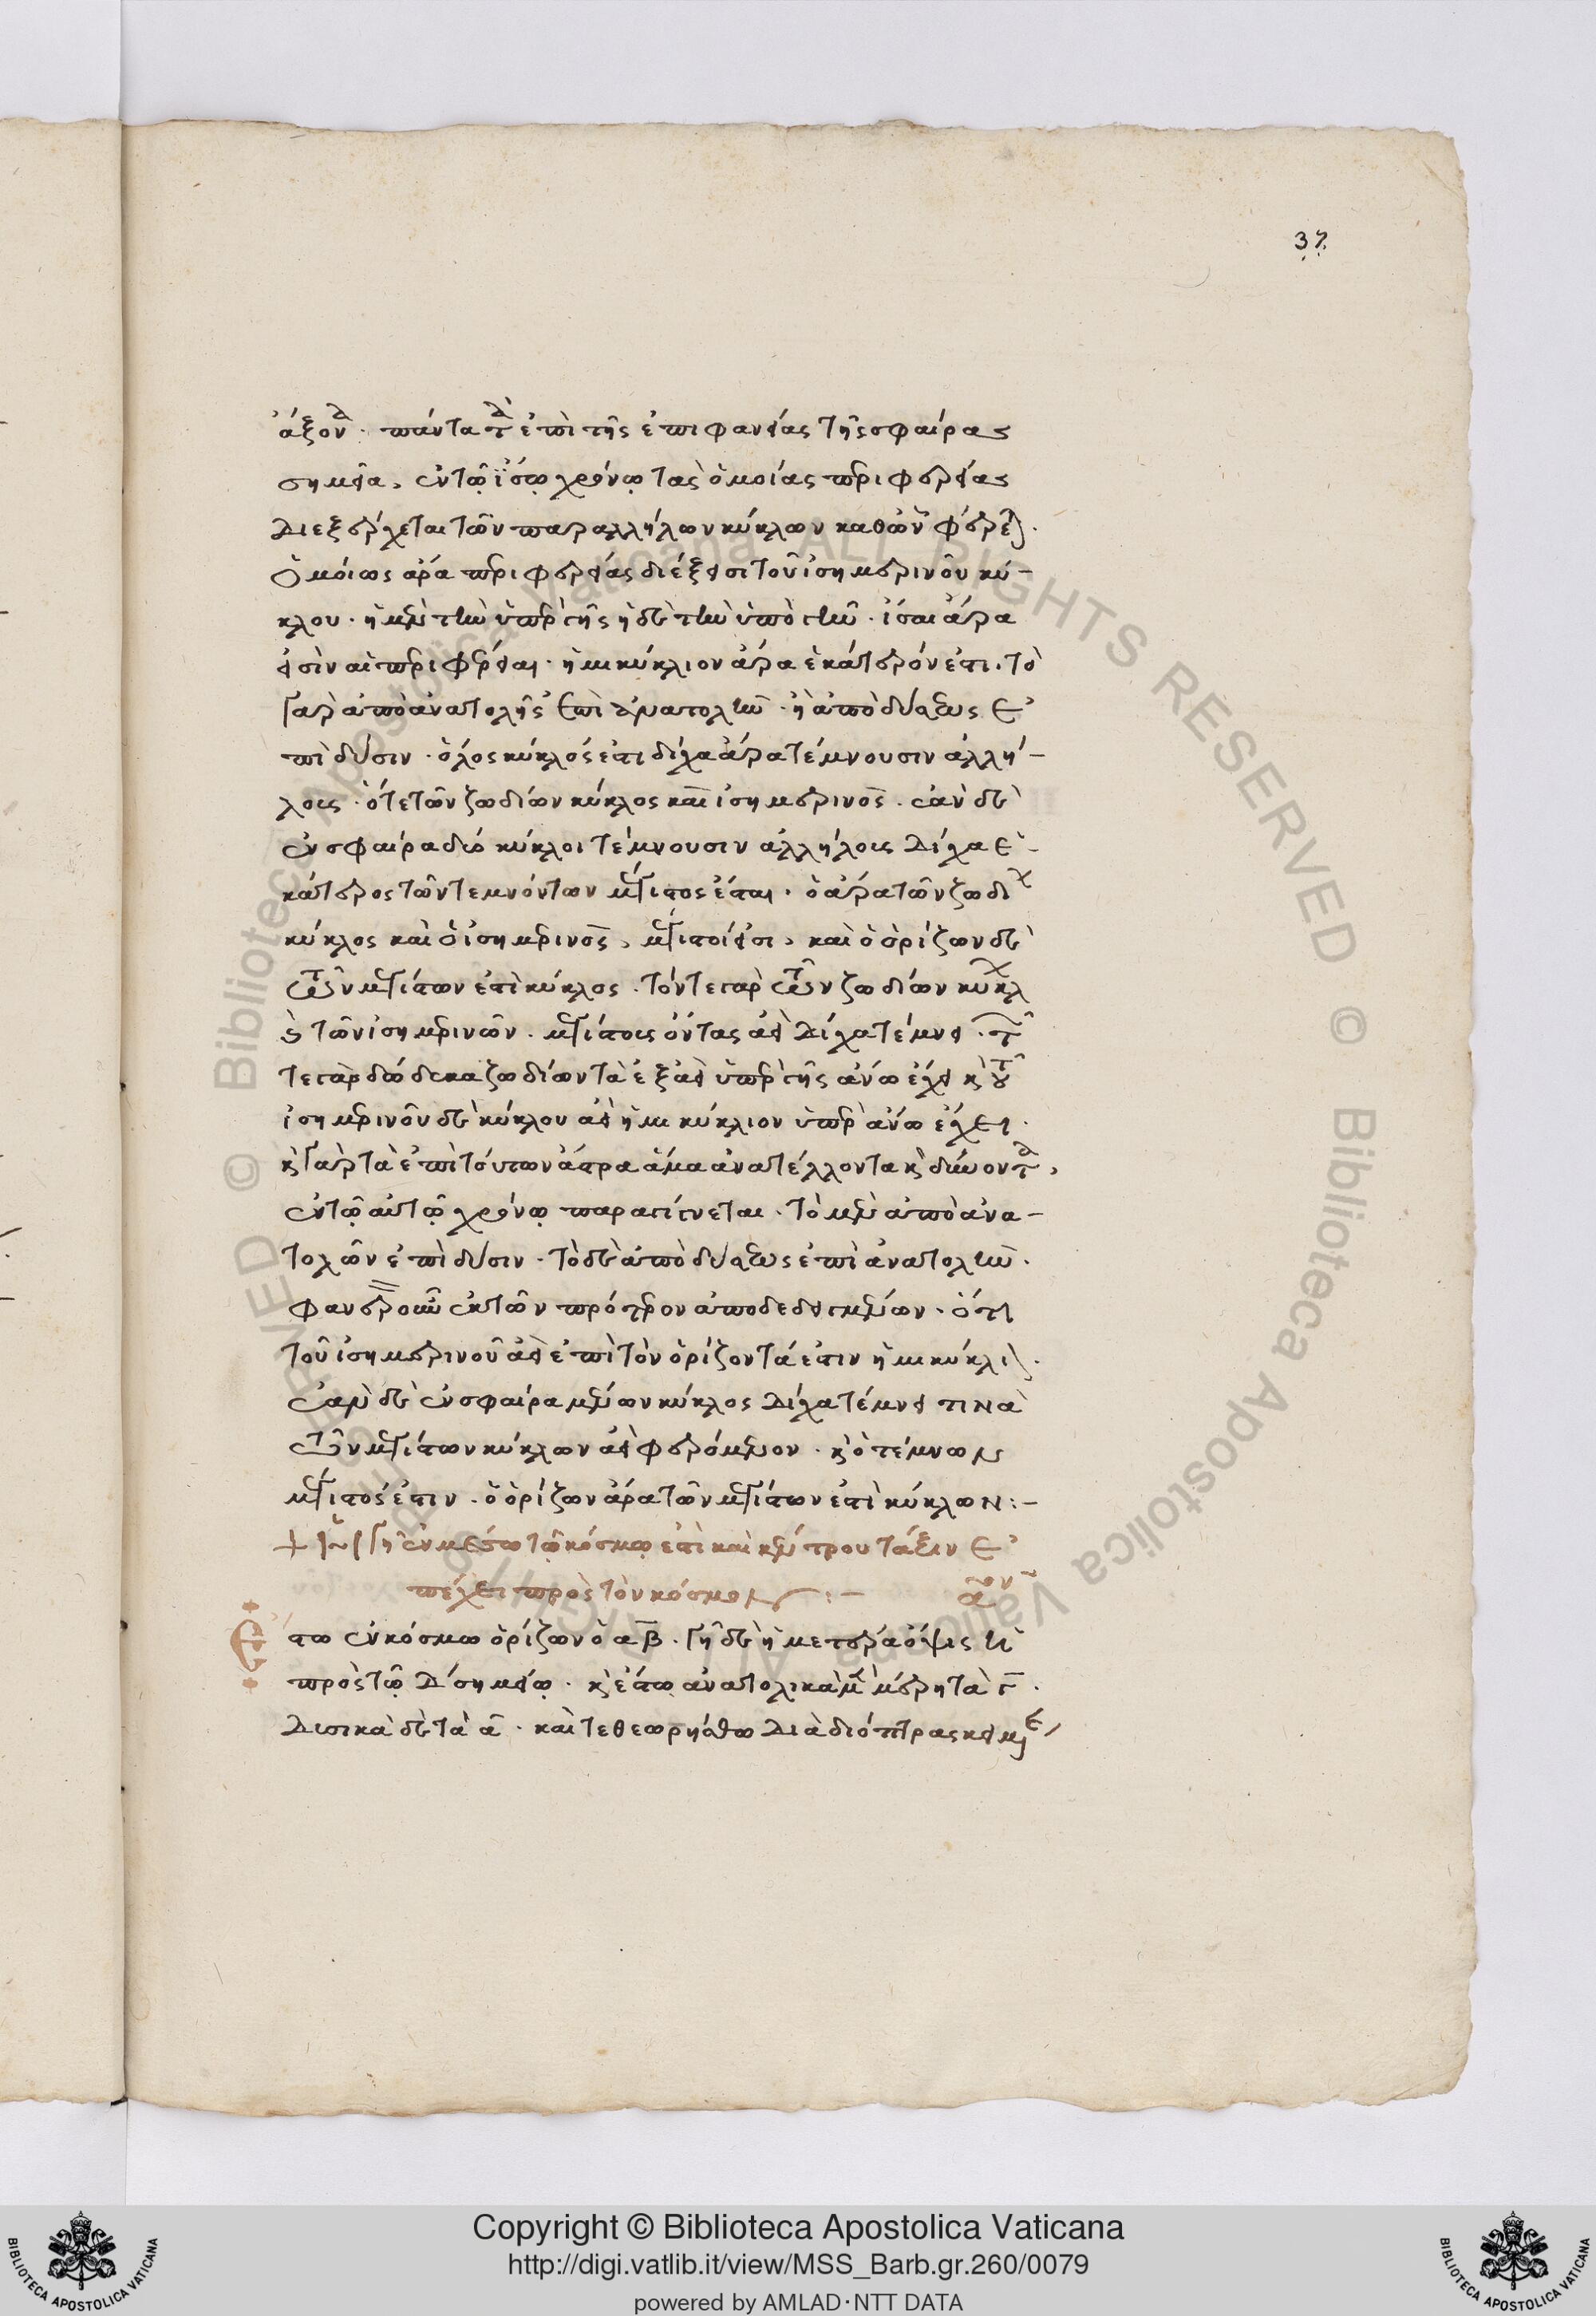 37
ἄξονα. πάντα τὰ ἐπὶ τῆς ἐπιφανείας τῆς σφαίρας
σημεῖα, ἐν τῷ ἴσῳ χρόνῳ τὰς ὁμοίας περιφερείας
διεξέρχεται τῶν παραλλήλων κύκλων καθ ὧν φέρεται.
ὁμοίως ἄρα περιφερείας διέξεισι τοῦ ἰσημερινοῦ κύ-
κλου. ἡ μὲν τὴν ὑπὲρ γῆς ἡ δὲ τὴν ὑπὸ γῆν. ἴσαι ἄρα
εἰσὶν αἱ περιφέρειαι. ἡμικύκλιον ἄρα ἑκάτερόν ἐστι. τὸ
γὰρ ἀπὸ ἀνατολῆς ἐπὶ ἀνατολὴν. ἢ ἀπὸ δύσεως ἐ
πὶ δύσιν. ὅλος κύκλός ἐστι δίχα ἄρα τέμνουσιν ἀλλή-
λους. ὅ τε τῶν ζωδίων κύκλος καὶ ἰσημερινός. ἐὰν δὲ
ἐν σφαίρα δύο κύκλοι τέμνουσιν ἀλλήλους δίχα ἑ-
κάτερος τῶν τεμνόντων μέγιστος ἔσται. ὁ ἄρα τῶν ζωδι
κύκλος καὶ ὁ ἰσημερινὸς, μέγιστοί εἰσι, καὶ ὁ ὁρίζων δὲ
τῶν μεγίστων ἐστὶ κύκλος. τόν τε γὰρ τῶν ζωδίων κύκλ
ὃ τῶν ἰσημερινῶν. μεγίστους ὄντας ἀεὶ δίχα τέμνει. τῶν
τε γὰρ δώδεκα ζωδίων τὰ ἓξ ἀεὶ ὑπὲρ γῆς ἄνω ἔχει καὶ τοῦ
ἰσημερινοῦ δὲ κύκλου ἀεὶ ἡμικύκλιον ὑπὲρ ἄνω ἔχει.
καὶ γὰρ τὰ ἐπὶ τούτων ἄστρα ἅμα ἀνατέλλοντα καὶ δύνοντα,
ἐν τῷ αὐτῷ χρόνῳ παραγίγνεται. τὸ μὲν ἀπὸ ἀνα-
τολῶν ἐπὶ δύσιν. τὸ δὲ ἀπὸ δύσεως ἐπὶ ἀνατολὴν.
φανερὸν οὖν ἐκ τῶν πρότερον ἀποδεδειγμένων. ὅτι
τοῦ ἰσημερινοῦ ἀεὶ ἐπὶ τὸν ὁρίζοντά ἐστιν ἡμικύκλιον.
ἐὰν δὲ ἐν σφαίρα μένων κύκλος δίχα τέμνει τινὰ
τῶν μεγίστων κύκλων ἀεὶ φερόμενον. καὶ ὁ τέμνων
μέγιστός ἐστιν. ὁ ὁρίζων ἄρα τῶν μεγίστων ἐστὶ κύκλων:-
+ Ὅτι ἡ γῆ ἐν μέσω τῷ κόσμῳ ἐστὶ καὶ κέντρου τάξιν ἐ
πέχει πρὸς τὸν κόσμον :-
Ἔστω ἐν κόσμω ὁρίζων ὁ αβ. γῆ δὲ ἡ μετέρα ὄψις ᾖ
πρὸς τῷ δ σημείῳ. καὶ ἔστω ἀνατολικὰ μὲν μέρη τὰ γ.
δυτικὰ δὲ τὰ α. καὶ τεθεωρήσθω διὰ διόπτρας κειμέ
Copyright © Biblioteca Apostolica Vaticana
http://digi.vatlib.it/view/MSS_Barb.gr.260/0079
powered by AMLAD·NTT DATA
BIBLIOTECA APOSTOLICA VATICANA
BIBLIOTECA APOSTOLICA VATICANA
© Biblioteca Apostolica Vaticana ALL RIGHTS RESERVED © Biblioteca Apostolica Vaticana ALL RIGHTS RESERVED